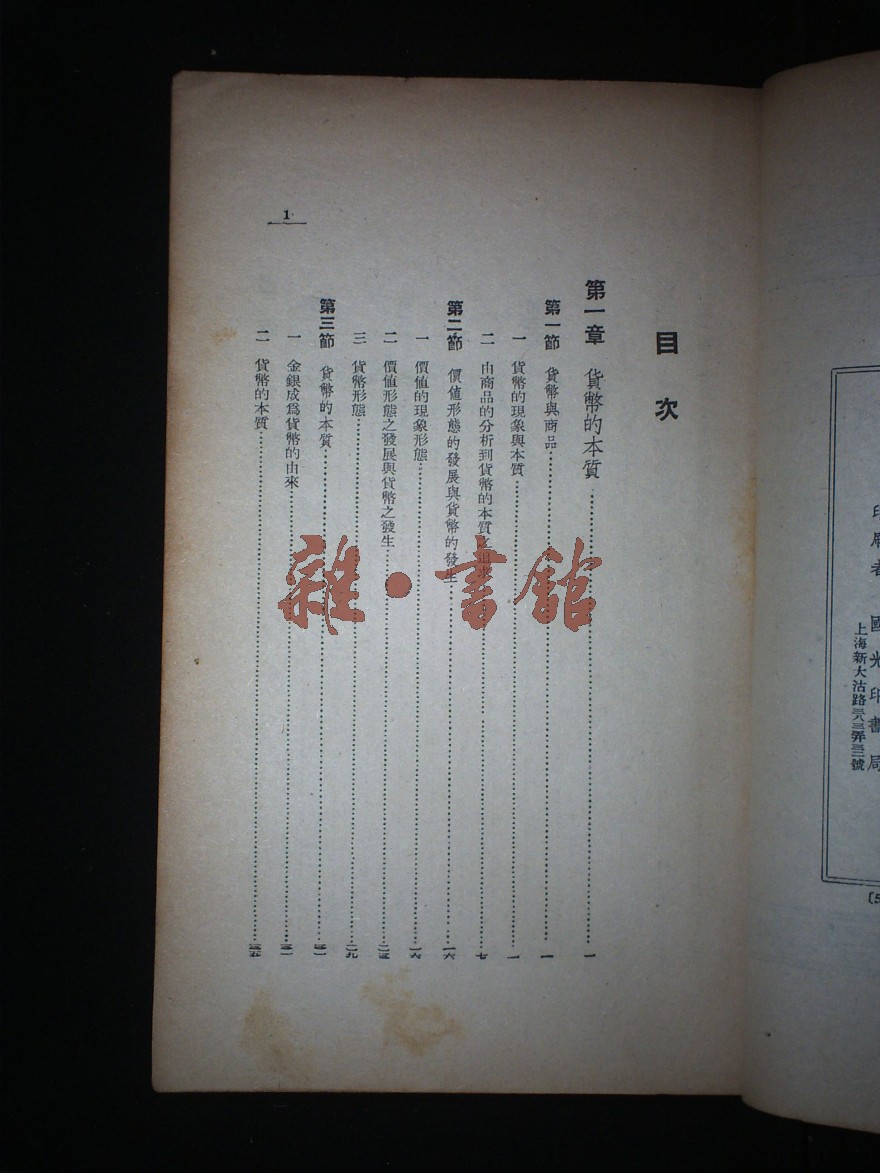 印刷者 國光印書局
上海新大沽路三八三弄三三號
目次
第一章 貨幣的本質…………一
第一節 貨幣與商品…………一
一 貨幣的現象與本質…………一
二 由商品的分析到貨幣的本質之追求…………七
第二節 價値形態的發展與貨幣的發生…………一六
一 價値的現象形態…………一六
二 價値形態之發展與貨幣之發生…………二五
三 貨幣形態…………二九
第三節 貨幣的本質…………三一
一 金銀成爲貨幣的由來…………三一
二 貨幣的本質…………三五
1
雜·書館